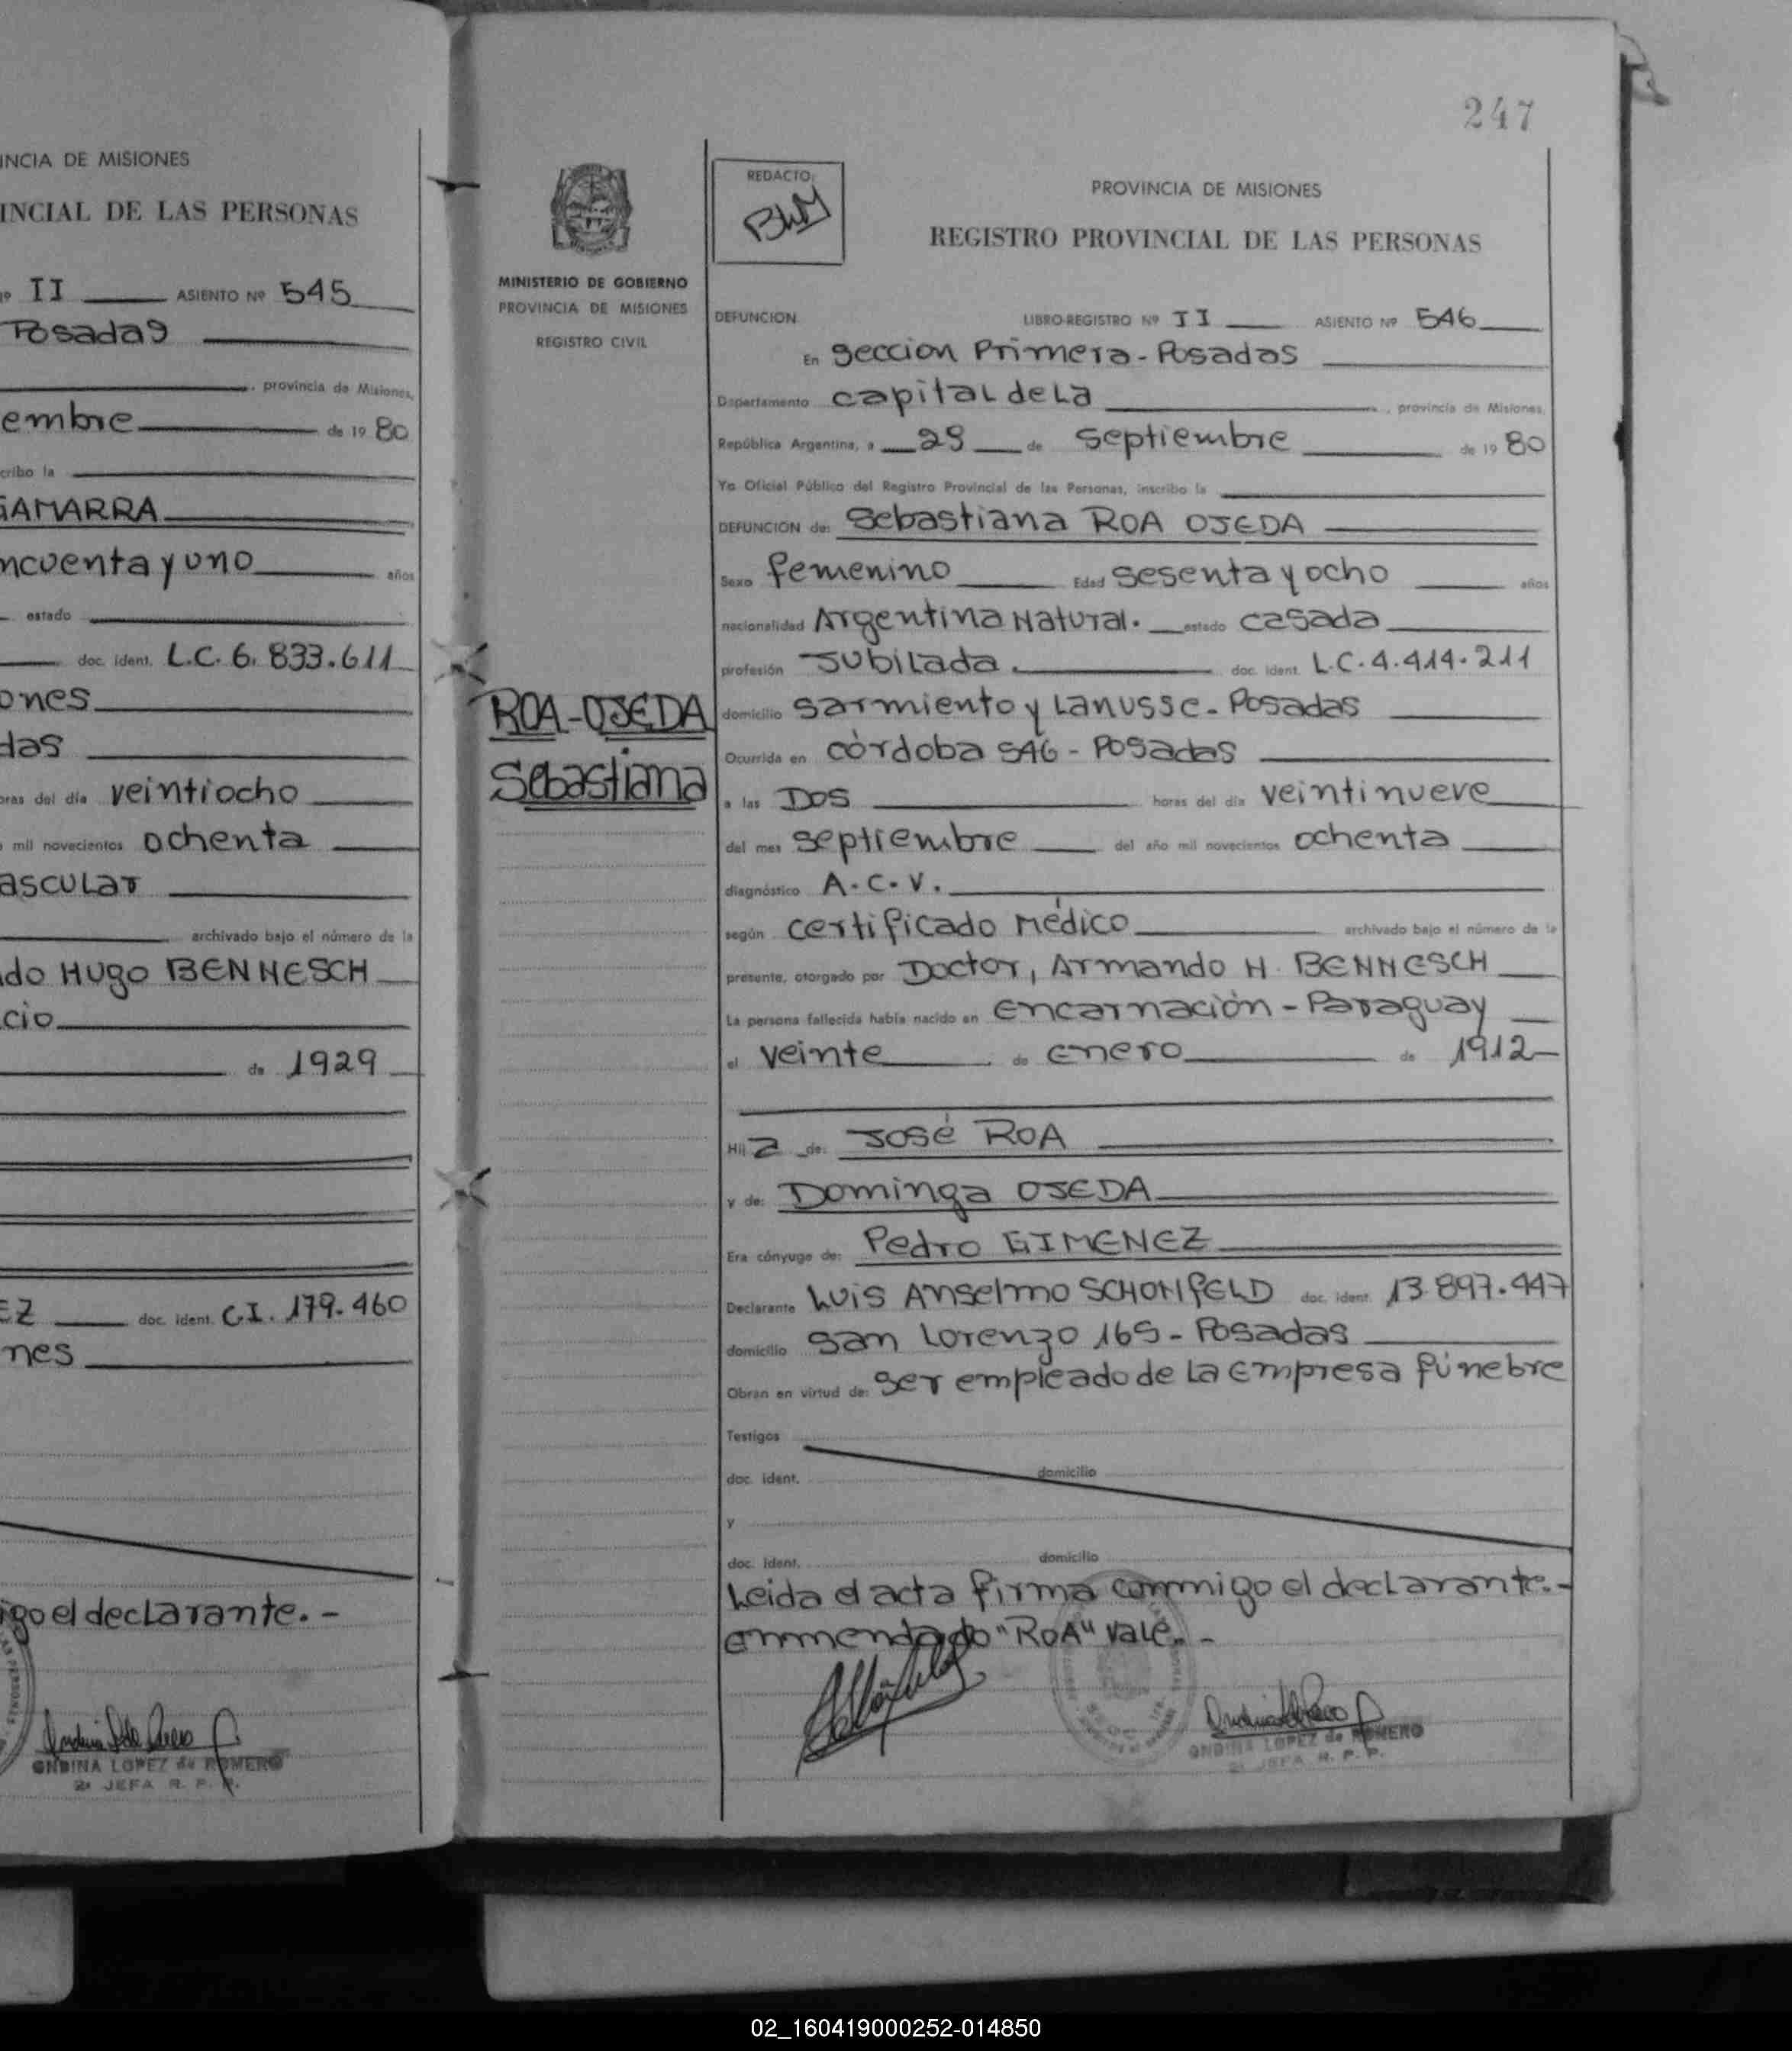 INCIA DE MISIONES
INCIAL DE LAS PERSONAS
II ASIENTO Nº 545
Posadas
, provincia de Misiones,
embre de 19 80
cribo la
GAMARRA
ncuenta y uno años
estado
doc. ident. L.C. 6.833.611
ones
das
oras del día veintiocho
mil novecientos ochenta
ascular
archivado bajo el número de la
do Hugo BENNESCH
cio
de 1929
EZ doc. ident. C.I. 179.460
nes
igo el declarante.-
ONDINA LOPEZ de ROMERO
2ª JEFA R. P. P.
247
MINISTERIO DE GOBIERNO
PROVINCIA DE MISIONES
REGISTRO CIVIL
ROA-OJEDA
Sebastiana
REDACTO:
BHM
PROVINCIA DE MISIONES
REGISTRO PROVINCIAL DE LAS PERSONAS
DEFUNCION LIBRO-REGISTRO Nº II ASIENTO Nº 546
En seccion Primera - Posadas
Departamento capital de la , provincia de Misiones,
República Argentina, a 29 de septiembre de 19 80
Yo Oficial Público del Registro Provincial de las Personas, inscribo la
DEFUNCION de: Sebastiana ROA OJEDA
Sexo femenino Edad sesenta y ocho años
nacionalidad Argentina Natural. estado casada
profesión Jubilada. doc. ident. L.C. 4.414.211
domicilio sarmiento y Lanusse - Posadas
Ocurrida en córdoba 546 - Posadas
a las Dos horas del día veintinueve
del mes septiembre del año mil novecientos ochenta
diagnóstico A.C.V.
según certificado médico archivado bajo el número de la
presente, otorgado por Doctor, Armando H. BENNESCH
La persona fallecida había nacido en Encarnación - Paraguay
el veinte de enero de 1912
Hij a de: José ROA
y de: Dominga OJEDA
Era cónyuge de: Pedro GIMENEZ
Declarante Luis Anselmo SCHONFELD doc. ident. 13.897.447
domicilio San Lorenzo 165 - Posadas
Obran en virtud de: ser empleado de la empresa fúnebre
Testigos
doc. ident. domicilio
y
doc. ident. domicilio
Leida el acta firma conmigo el declarante.-
enmendado "ROA" vale.-
ONDINA LOPEZ de ROMERO
2ª JEFA R. P. P.
02_160419000252-014850